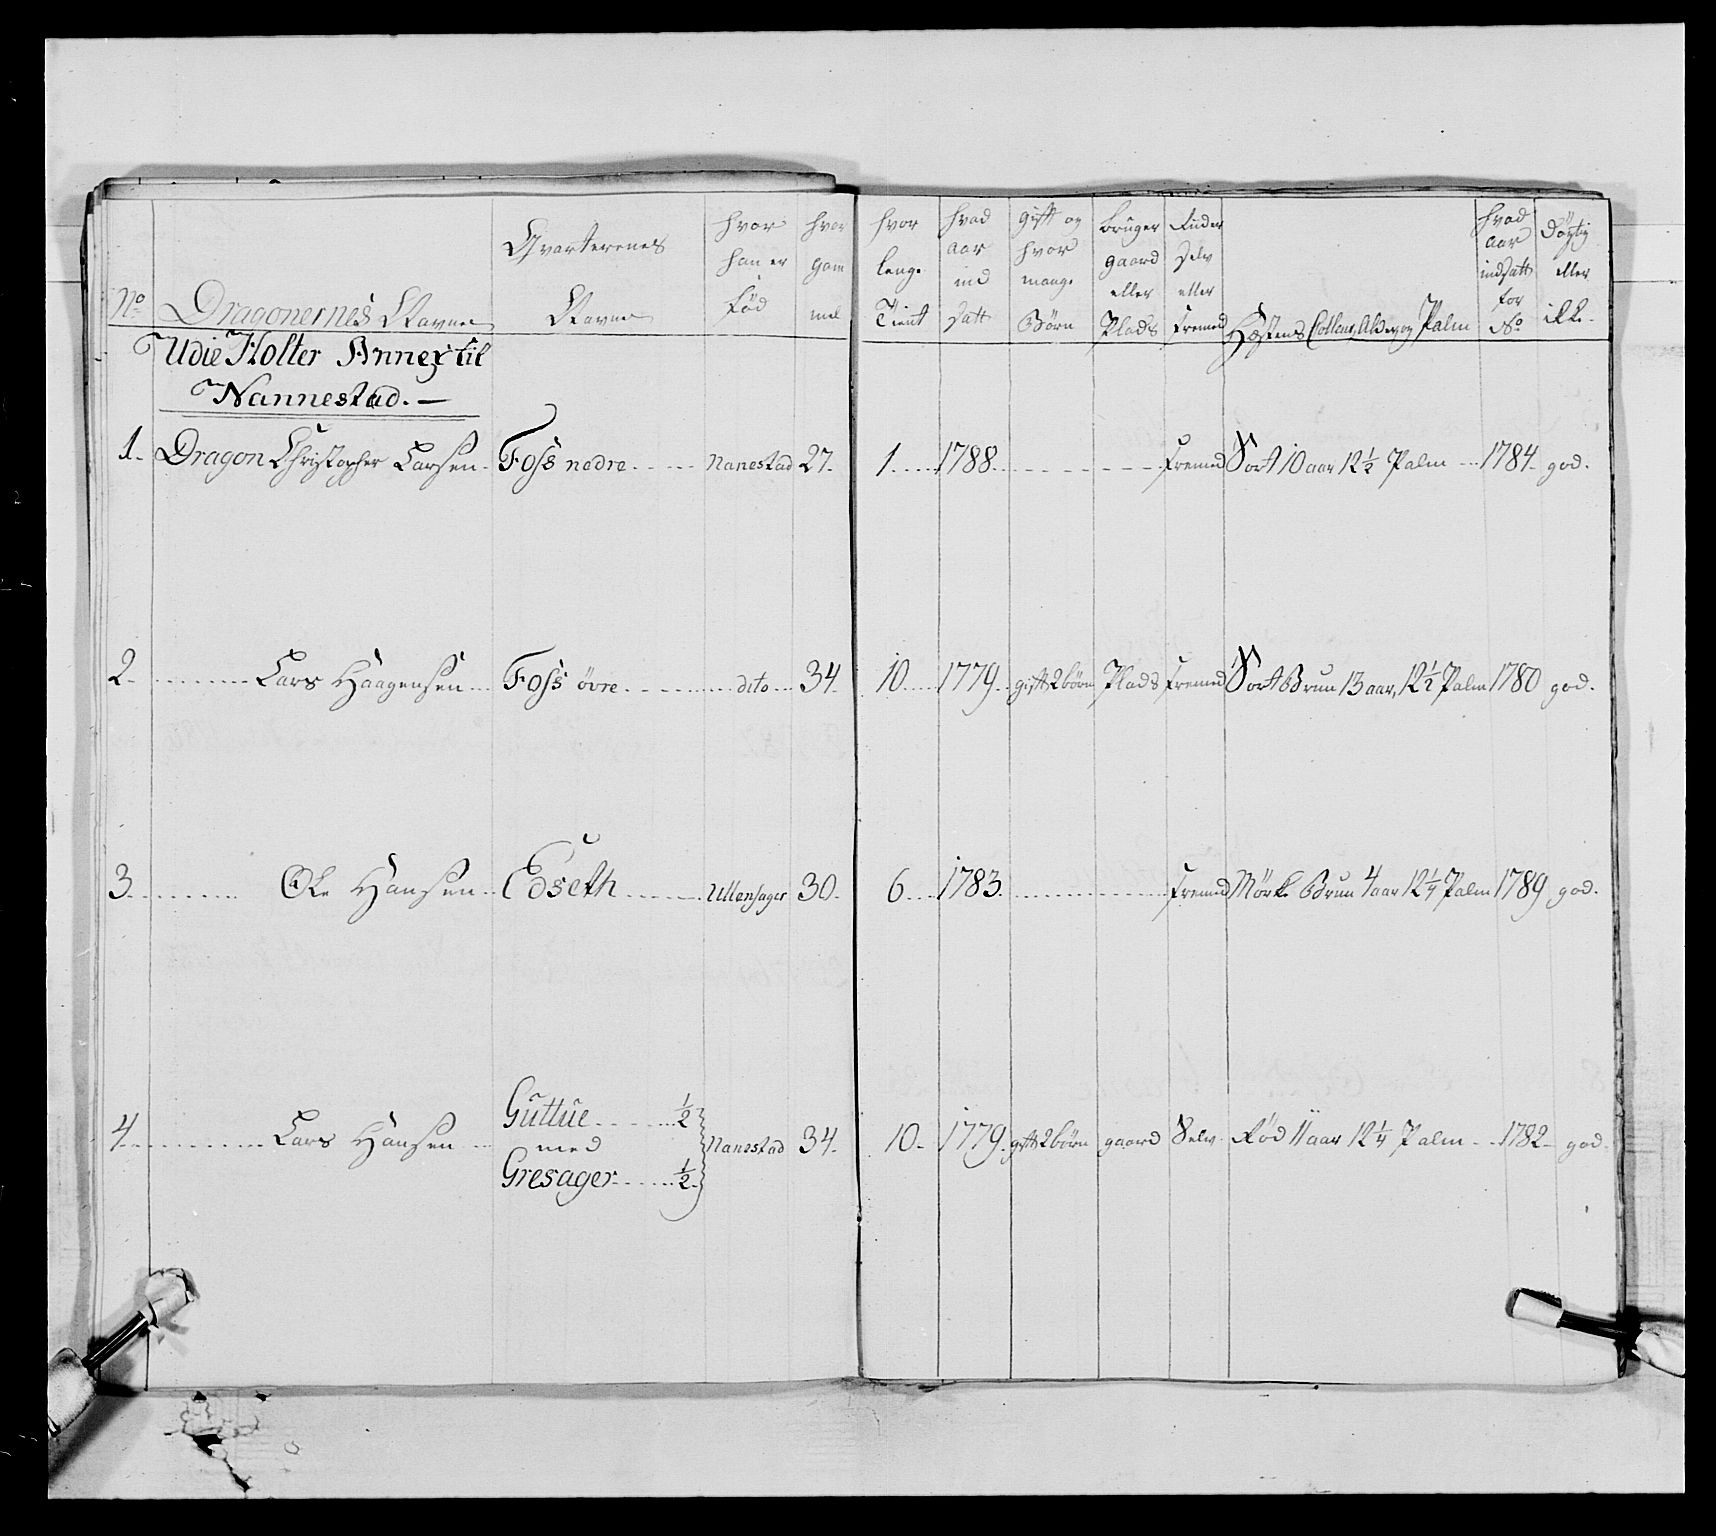 No | Dragonernes Navne | Qvarterenes Navne | hvor han er fød | hvor gam mel | hvor lenge Tient | hvad aar ind satt | gift og hvor mange Børn | bruger gaard eller Plads | Rider Selv eller Fremed | Hæstens Colleur, Alder og Palm | hvad aar indsatt for No | døgtig eller ikke
Udie Holter Annex til
Nannestad. —
1. Dragon Christopher Larsen | Foss nedre | Nanestad | 27. | 1. | 1788. | | | Fremed | Sort 10 aar 12½ Palm | 1784. | god.
2. Lars Haagensen | Foss övre | dito | 34. | 10. | 1779. | gift 2 börn | Plads | Fremed | Sort Brun 13 aar, 12½ Palm | 1780 | god.
3. Ole Hansen | Edseth | Ullensager | 30. | 6. | 1783. | | | Fremed | Mörk Brun 4 aar 12¼ Palm | 1789 | god.
4. Lars Hansen | Guttue ½ med Gresager ½. | Nanestad | 34. | 10. | 1779. | gift 2 börn | gaard | Selv | Rød 11 aar 12¼ Palm | 1782 | god.